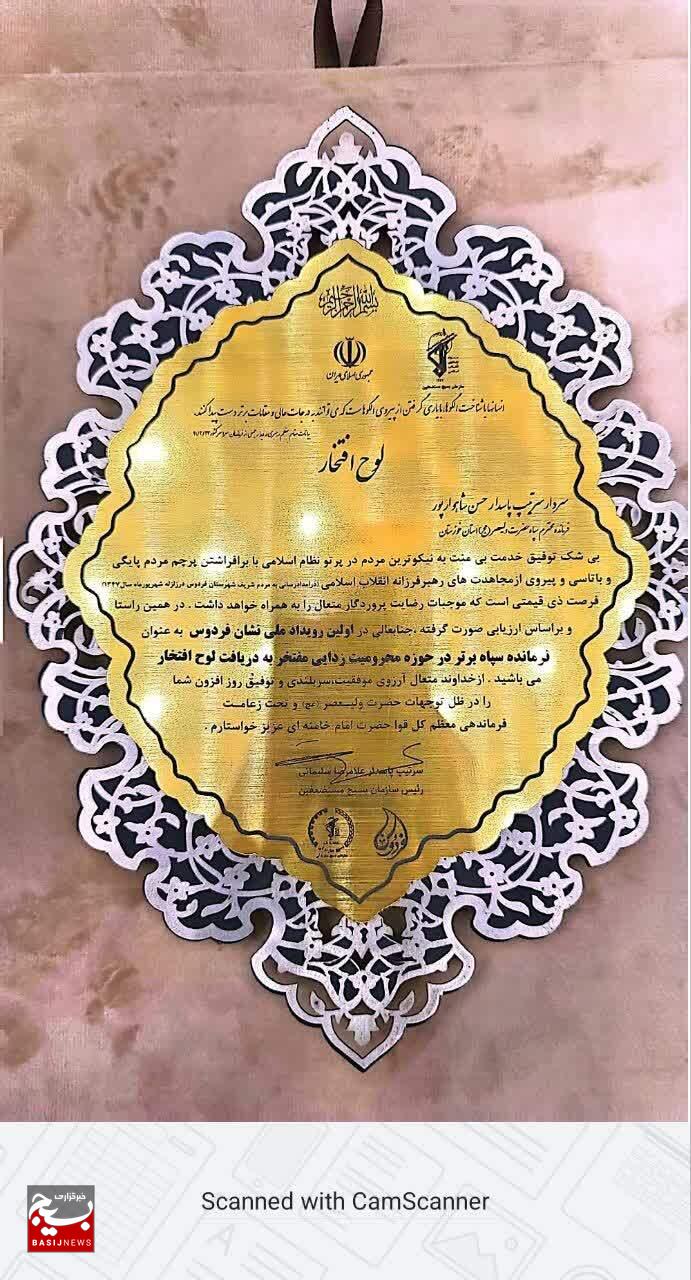 بسم الله الرحمن الرحیم
جمهوری اسلامی ایران
سازمان بسیج مستضعفین
انسانها با شناخت الگوها با یاری گرفتن از پیروی الگوهاست که می توانند به درجات عالی و مقامات برتر دست پیدا کنند.
لوح افتخار
سردار سرتیپ پاسدار حسن شاهوارپور
فرمانده محترم سپاه حضرت ولیعصر (عج) استان خوزستان
بی شک توفیق خدمت بی منت به نیکوترین مردم در پرتو نظام اسلامی با برافراشتن پرچم مردم پایگی
و باتاسی و پیروی ازمجاهدت های رهبرفرزانه انقلاب اسلامی (درامدادرسانی به مردم شریف شهرستان فردوس درزلزله شهریورماه سال۱۳۴۷)
فرصت ذی قیمتی است که موجبات رضایت پروردگار متعال را به همراه خواهد داشت . در همین راستا
و براساس ارزیابی صورت گرفته ،جنابعالی در اولین رویداد ملی نشان فردوس به عنوان
فرمانده سپاه برتر در حوزه محرومیت زدایی مفتخر به دریافت لوح افتخار
می باشید . ازخداوند متعال آرزوی موفقیت،سربلندی و توفیق روز افزون شما
را در ظل توجهات حضرت ولیعصر (عج) و تحت زعامت
فرماندهی معظم کل قوا حضرت امام خامنه ای عزیز خواستارم .
سرتیپ پاسدار غلامرضا سلیمانی
رئیس سازمان بسیج مستضعفین
فردوس
Scanned with CamScanner
خبرگزاری
بسیج
BASIJNEWS